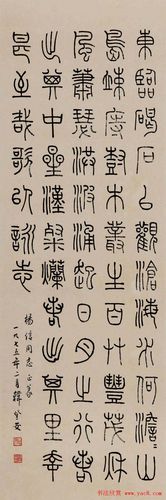 東臨碣石以觀滄海水何澹〻山
島竦峙樹木叢生百草豐茂秋
風蕭瑟洪波涌起日月之行若
出其中星漢粲爛若出其里幸
甚至哉歌以詠志
楊信同志正篆
一九七五年二月韓登安
书法欣赏
www.yac8.com